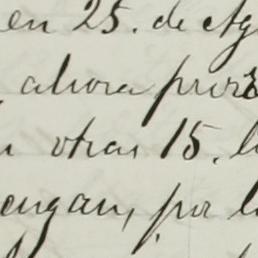 en 25. de Ag
ahora
otras 15.
engan, por l